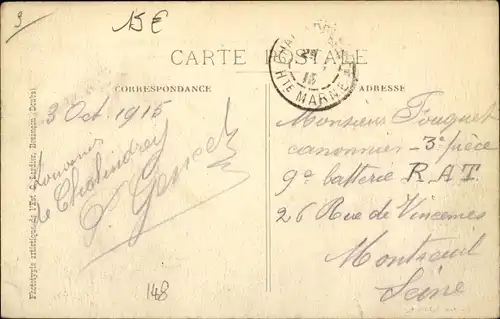 9
15 E
CARTE POSTALE
CORRESPONDANCE
ADRESSE
HTE MARNE
15
3 Oct. 1915
Souvenir
de Chalindrey
Monsieur Fouquet
canonnier - 3e pièce
9e batterie R.A.T.
26 Rue de Vincennes
Montreuil
Seine
148
Phototypie artistique de l'Est, C. Lardier, Besançon (Doubs)